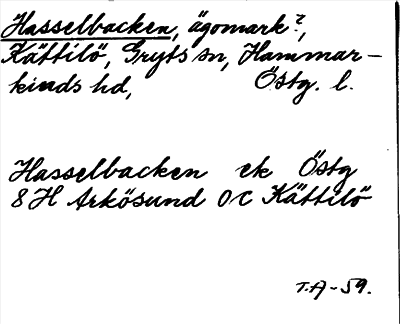 Hasselbacken, ägomark?,
Kättilö, Gryts sn, Hammar-
kinds hd, Östg. l.
Hasselbacken ek Östg
8H Arkösund 0c Kättilö
T.A-59.